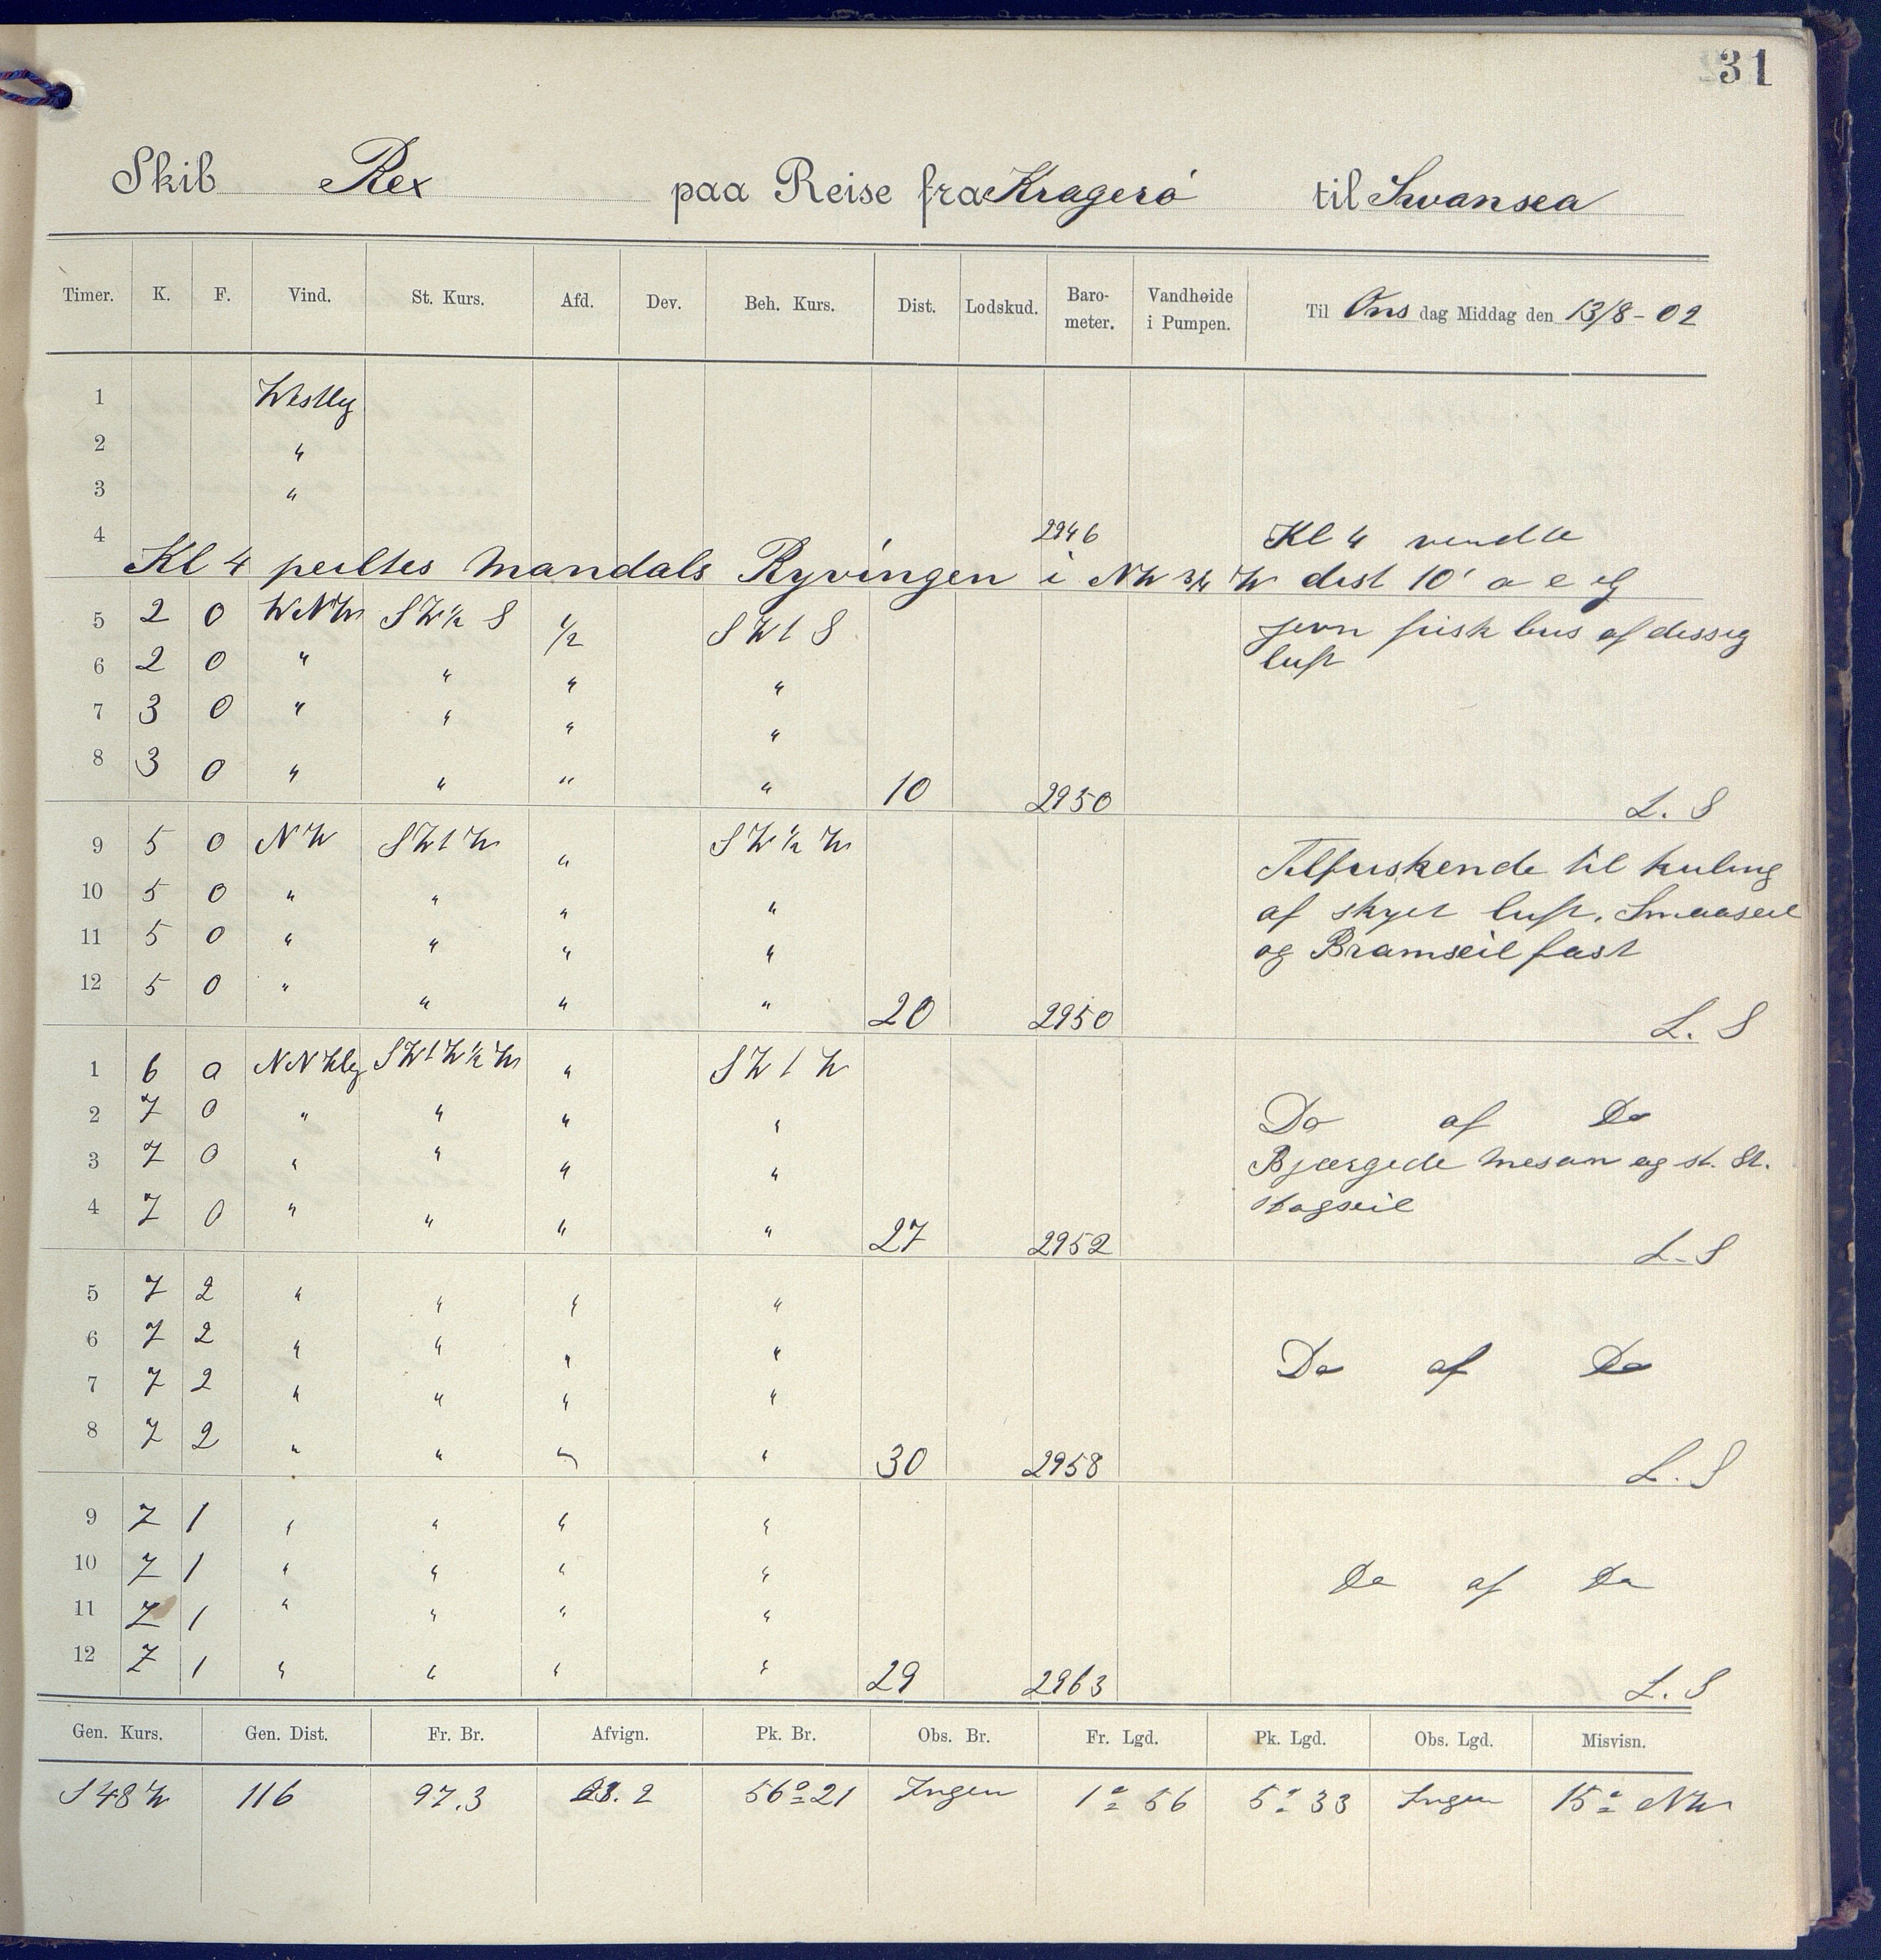 31
Skib Rex paa Reise fra Kragerö til Swansea
Timer. K. F. Vind. St. Kurs. Afd. Dev. Beh. Kurs. Dist. Lodskud. Barometer. Vandhøide i Pumpen. Til Onsdag Middag den 13/8-02
1 Westlig
2 "
3 "
4 2946 Kl 4 vendte
Kl 4 peiltes Mandals Ryvingen i NW 3/4 W dist 10' a e g
5 2 0 WNW SW 1/2 S 1/2 SW t S jevn frisk bris af dissig
6 2 0 " " " " luft
7 3 0 " " " "
8 3 0 " " " " 10 2950 L. S
9 5 0 NW SW t W " SW 1/2 W Tilfriskende til kuling
10 5 0 " " " " af skyet luft. Smaaseil
11 5 0 " " " " og Bramseil fast
12 5 0 " " " " 20 2950 L. S
1 6 0 NNWlig SW t W 1/2 W " SW t W
2 7 0 " " " " Do af Do
3 7 0 " " " " Bjærgede Mesan og st. St.
4 7 0 " " " " 27 2952 stagseil L. S
5 7 2 " " " "
6 7 2 " " " " Do af Do
7 7 2 " " " "
8 7 2 " " " " 30 2958 L. S
9 7 1 " " " "
10 7 1 " " " " Do af Do
11 7 1 " " " "
12 7 1 " " " " 29 2963 L. S
Gen. Kurs. Gen. Dist. Fr. Br. Afvign. Pk. Br. Obs. Br. Fr. Lgd. Pk. Lgd. Obs. Lgd. Misvisn.
S 48 W 116 97.3 56° 21 Ingen 1° 56 5° 33 Ingen 15° NW